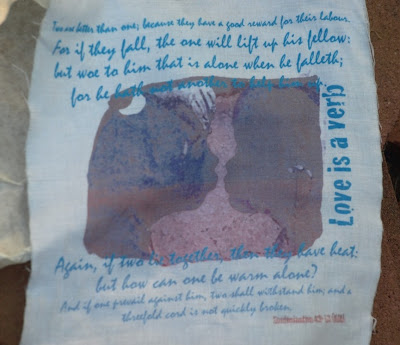 Two are better than one; because they have a good reward for their labour.
For if they fall, the one will lift up his fellow:
but woe to him that is alone when he falleth;
for he hath not another to help him up.
Love is a verb
Again, if two lie together, then they have heat:
but how can one be warm alone?
And if one prevail against him, two shall withstand him; and a
threefold cord is not quickly broken.